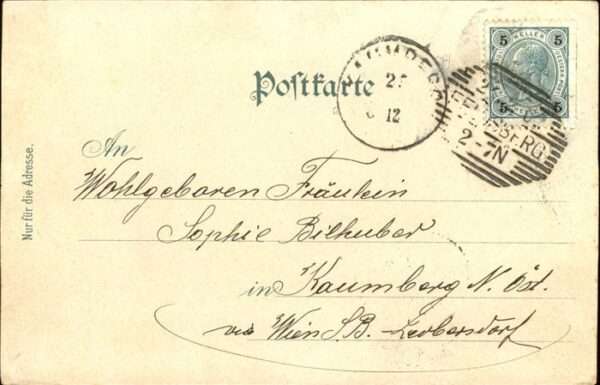 Postkarte
KAUMBERG
12
5 HELLER 5
5 5
FELDSBERG
2-7N
Nur für die Adresse.
An
Wohlgeboren Fräulein
Sophie Bilhuber
in Kaumberg N. Öst.
via Wien S.B. - Leobersdorf